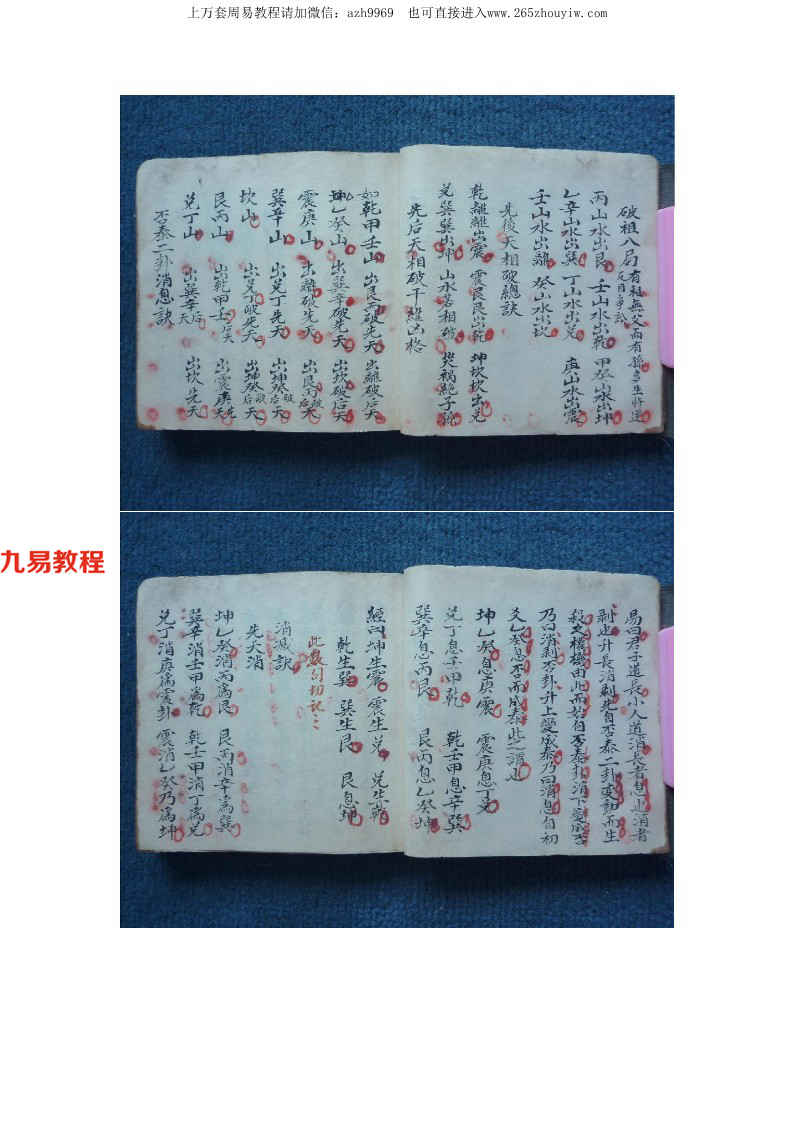 上万套周易教程请加微信：azh9969 也可直接进入www.265zhouyiw.com
破祖八局
有祖無父而有孫多生忤逆
丙山水出艮 壬山水出乾 甲癸山水出坤
乙辛山水出巽 丁山水出兑 庚山水出震
壬山水出離 癸山水出坎
先後天相破總訣
乾離離出震 震艮艮出乾 坤坎坎出兑
兑巽巽出坤 山水若相破 災禍絕子孫
先后天相破干維凶格
如乾甲壬山 出艮丙破先天 出離破后天
坤乙癸山 出巽辛破先天 出坎破后天
震庚山 出離破先天 出艮丙破后天
巽辛山 出兑丁先天 出坤癸破后天
坎山 出兑丁破先天 出坤癸破后天
艮丙山 出乾甲壬后天 出震庚先天
兑丁山 出巽辛后天 出坎先天
否泰二卦消息訣
九易教程
易曰君子道長小人道消長者息也消者
剥也升長消剥先自否泰二卦变動而生
殺之樞機由此而始自否泰卦消下爻成否
乃曰消剥否卦升上爻成泰乃曰消息自初
爻乙癸息否而成泰此之謂也
坤乙癸息庚震 震庚息丁兑
兑丁息壬甲乾 乾壬甲息辛巽
巽辛息丙艮 艮丙息乙癸坤
經曰坤生震 震生兑 兑生乾
乾生巽 巽生艮 艮息坤
此數句切記之之
消滅訣
先天消
坤乙癸消丙為艮 艮丙消辛為巽
巽辛消壬甲為乾 乾壬甲消丁為兑
兑丁消庚為震卦 震消乙癸乃為坤